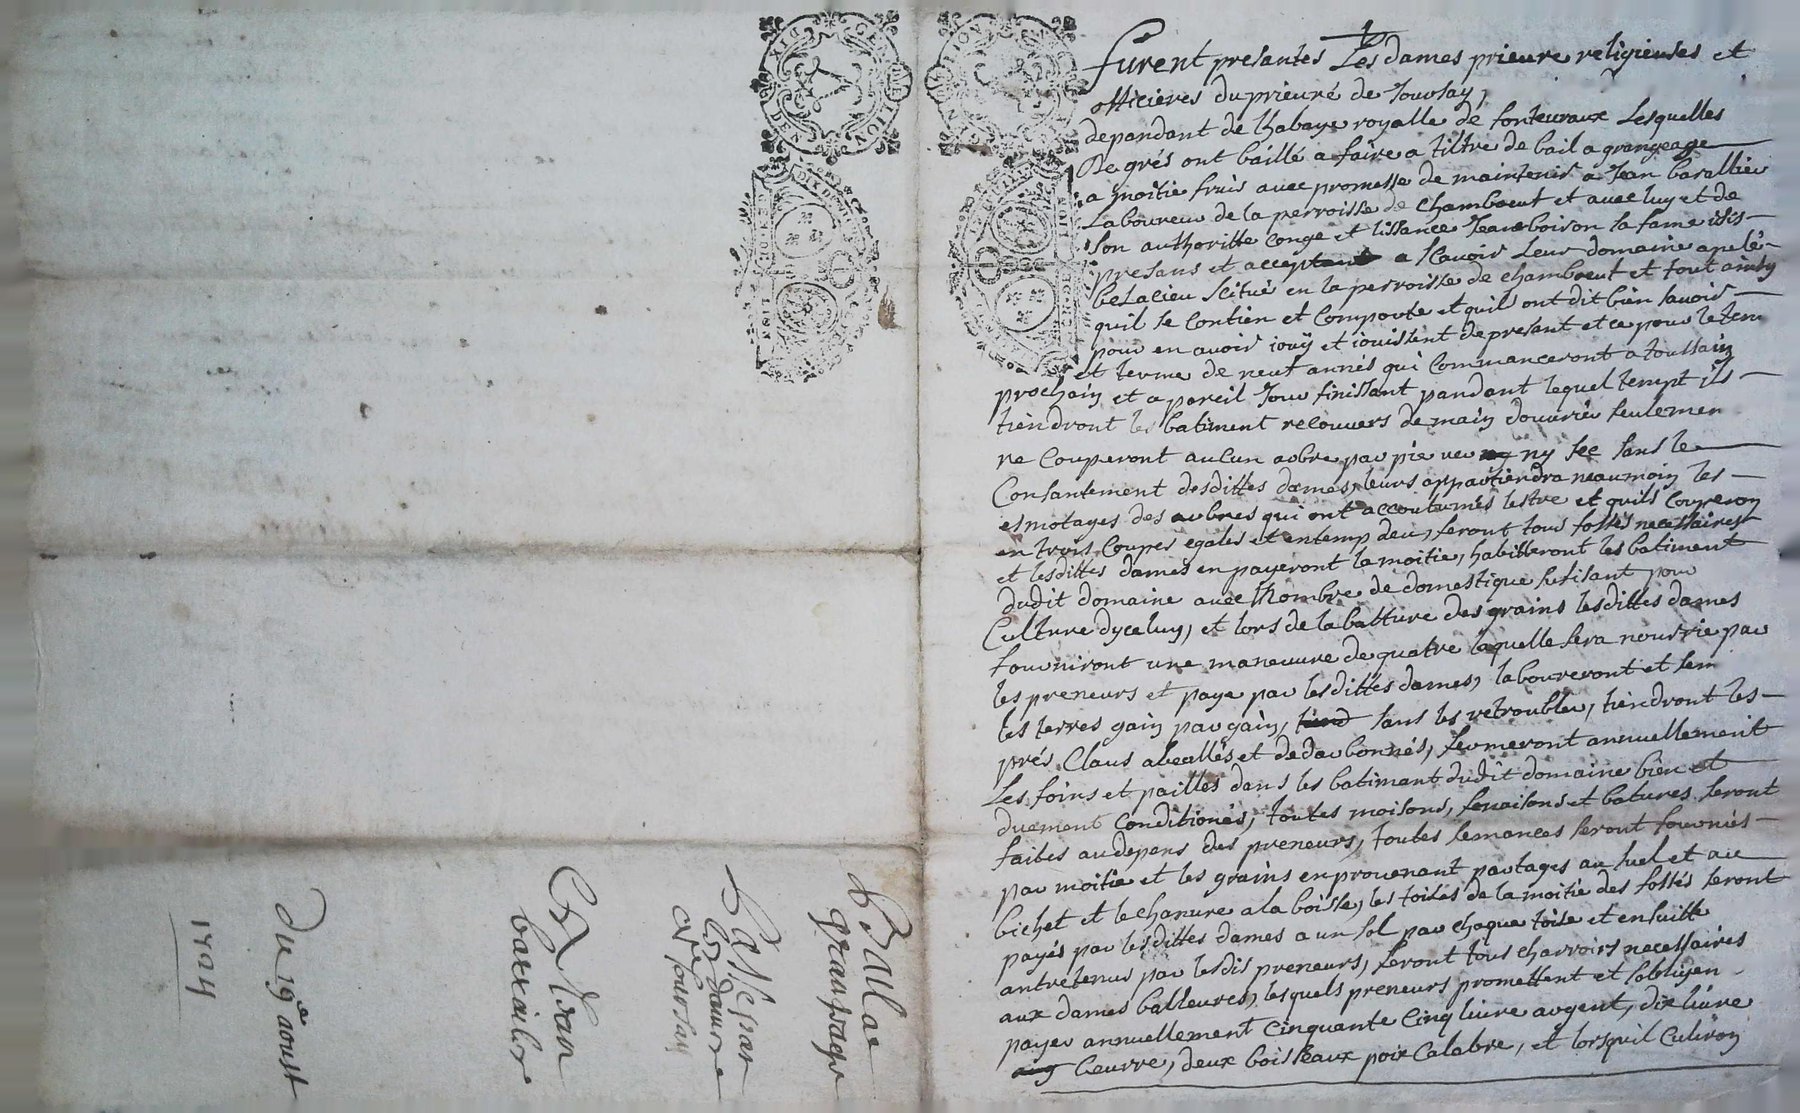 furent presantes Les dames prieure religieuses et
officieres du prieuré de Joursay,
depandant de labaye royalle de fonteuraux Lesquelles
De grés ont baillé a faire a tiltre de bail a grangeage
a moitie fruis auec promesse de maintenir a Jean barallier
Laboureur de la perroisse de Chambœuf et auec luy et de
son authoritte conge et lissance Jeane boiron sa fame icis
presans et acceptant a scauoir Leur domaine apelé
belacieu scitué en la perroisse de chambœuf et tout ainsy
quil se contien et comporte et quil ont dit bien sauoir
pour en auoir jouÿ et jouissent de presant et ce pour le tem
et terme de neuf annés qui commanceront a toussain
prochain et a pareil Jour finissant pandant lequel tempt ils
tiendront les batiment recouuers de main douurier seulemen
ne couperont aucun aobre par pie uer ny sec sans le
Consantement desdittes dames, leurs appartiendra neaumoin les
esmotages des aubres qui ont accoutumés lestre et quils couperon
en trois coupes egales et en temp deu, feront tous fossés necessaires
et lesdittes dames en payeront la moitie, habitteront les batiment
dudit domaine auec Nombre de domestique sufisant pour
Culture dyceluy, et lors de la batture des grains lesdittes dames
fourniront une maneuure de quatre laquelle sera nourrie par
les preneurs et paye par lesdittes dames, laboureront et sem
les terres gain par gain, sans les retroubler, tiendront les
prés Claus abeallés et dedarbonnés, fermeront annuellement
Les foins et pailles dans les batimant dudit domaine bien et
duement conditionés, toutes moisons, fenaisons et batures seront
faites au depens des preneurs, toutes semances seront fournies
par moitie et les grains en prouenant partages au suel et au
bichet et le chanure a la boisse, les toises de la moitie des fossés seront
payés par lesdittes dames a un sol par chaque toise et ensuitte
antretenus par lesdis preneurs, feront tous charroirs necessaires
aux dames bailleures, lesquels preneurs promettent et sobligen
payer annuellement cinquante cinq liure argent, dix liure
beurre, deux boisseaux poix Calabre, et lorsquil Cuiron
Bail a
grangage
Passé par
les dames
de Joursay
A Jean
barailer
Du 19e aoust
1724